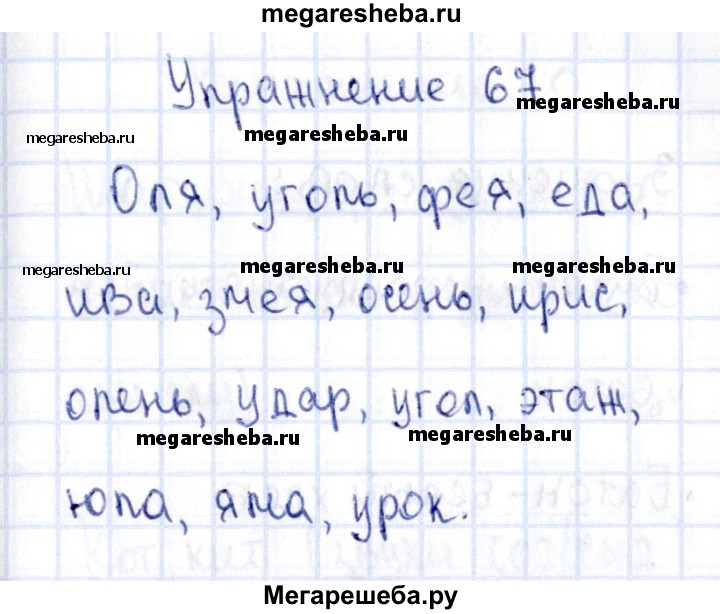 megaresheba.ru
Упражнение 67
megaresheba.ru
megaresheba.ru
megaresheba.ru
Оля, уголь, фея, еда,
megaresheba.ru
megaresheba.ru
megaresheba.ru
ива, змея, осень, ирис,
олень, удар, угол, этаж,
megaresheba.ru
megaresheba.ru
юла, яма, урок.
Мегарешеба.ру